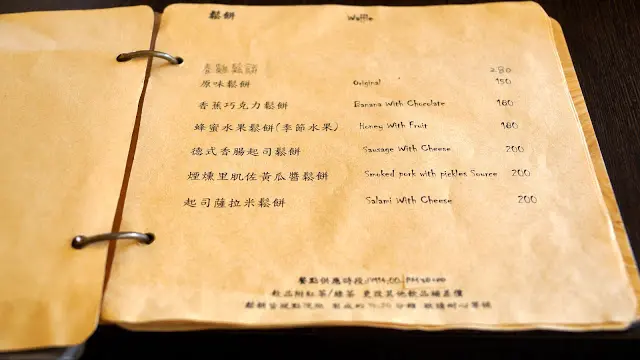 鬆餅 Waffle
鬆餅 280
原味鬆餅 Original 150
香蕉巧克力鬆餅 Banana With Chocolate 160
蜂蜜水果鬆餅(季節水果) Honey With Fruit 180
德式香腸起司鬆餅 Sausage With Cheese 200
煙燻里肌佐黃瓜醬鬆餅 Smoked pork with pickles Source 200
起司薩拉米鬆餅 Salami With Cheese 200
餐點供應時段
飲品附紅茶/綠茶 更改其他飲品補差價
鬆餅皆現點現做 製成約 分鐘 敬請耐心等候